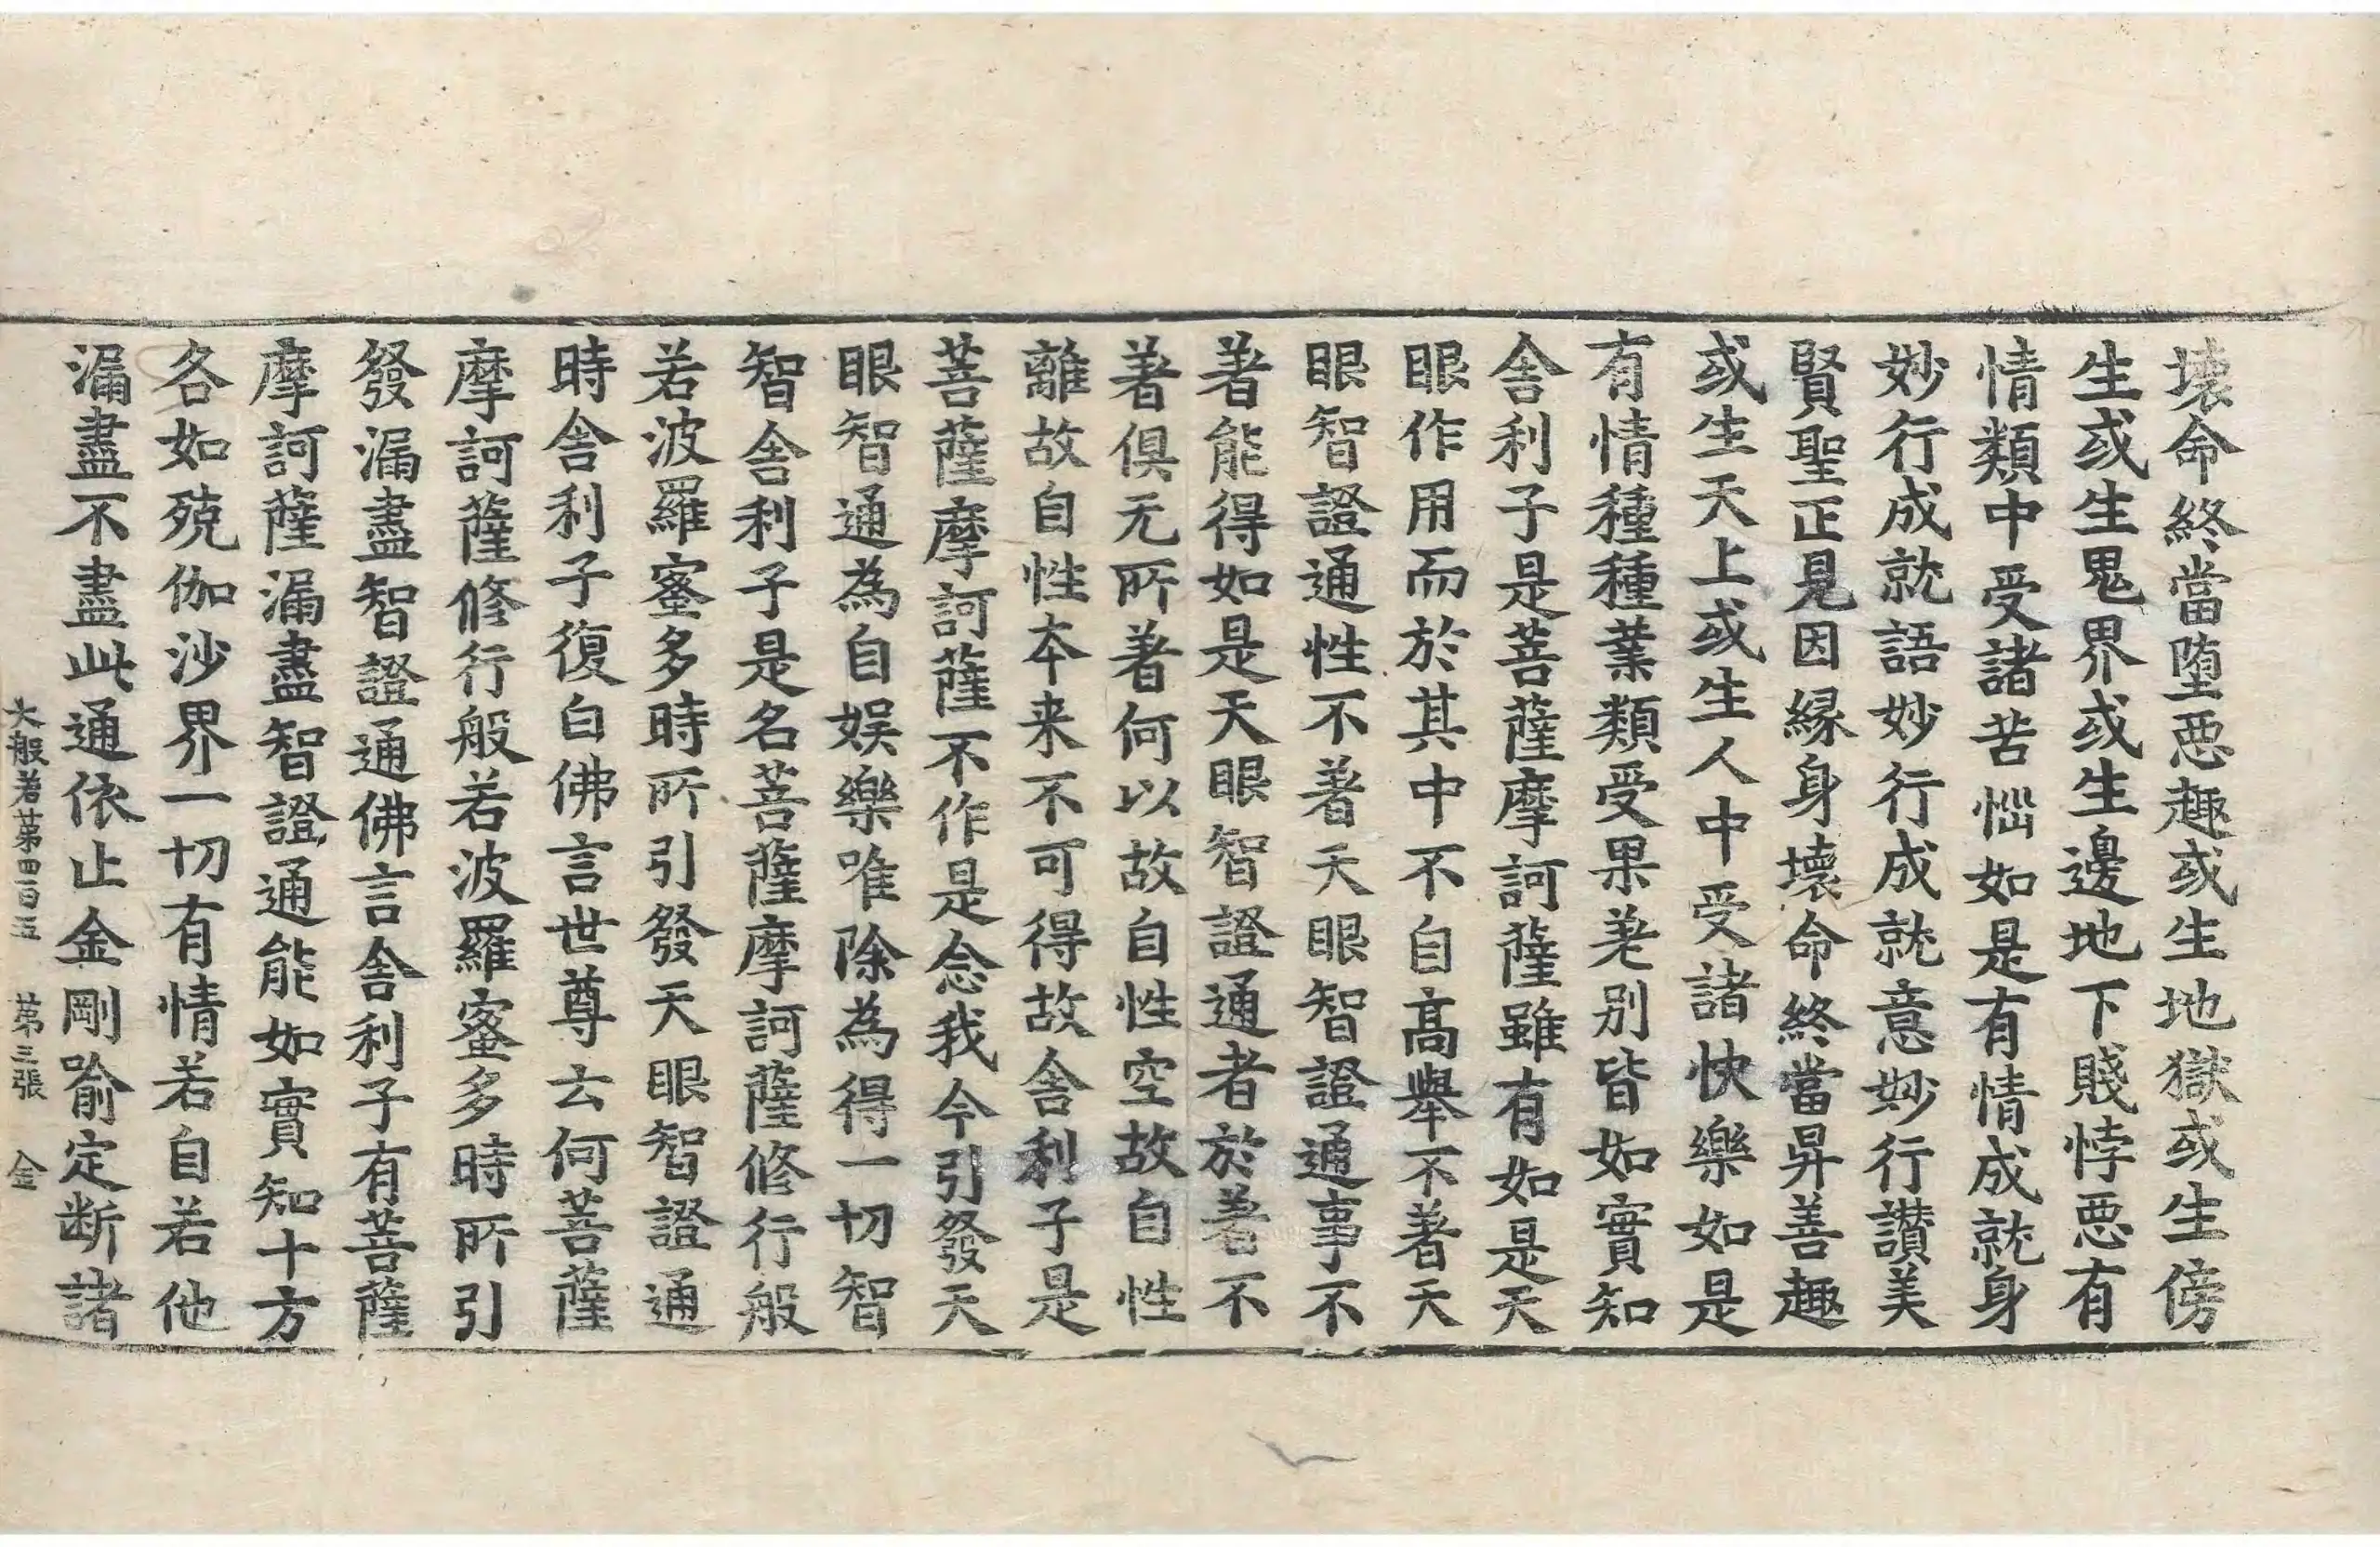 壊命終當墮惡趣或生地獄或生傍
生或生鬼界或生邊地下賤悖惡有
情類中受諸苦惱如是有情成就身
妙行成就語妙行成就意妙行讃美
賢聖正見因緣身壊命終當昇善趣
或生天上或生人中受諸快樂如是
有情種種業類受果差別皆如實知
舍利子是菩薩摩訶薩雖有如是天
眼作用而於其中不自高舉不著天
眼智證通性不著天眼智證通事不
著能得如是天眼智證通者於著不
著俱无所著何以故自性空故自性
離故自性本来不可得故舍利子是
菩薩摩訶薩不作是念我今引發天
眼智通為自娯樂唯除為得一切智
智舍利子是名菩薩摩訶薩修行般
若波羅蜜多時所引發天眼智證通
時舍利子復白佛言世尊云何菩薩
摩訶薩修行般若波羅蜜多時所引
發漏盡智證通佛言舍利子有菩薩
摩訶薩漏盡智證通能如實知十方
各如殑伽沙界一切有情若自若他
漏盡不盡此通依止金剛喻定断諸
大般若第四百五 第三張 金